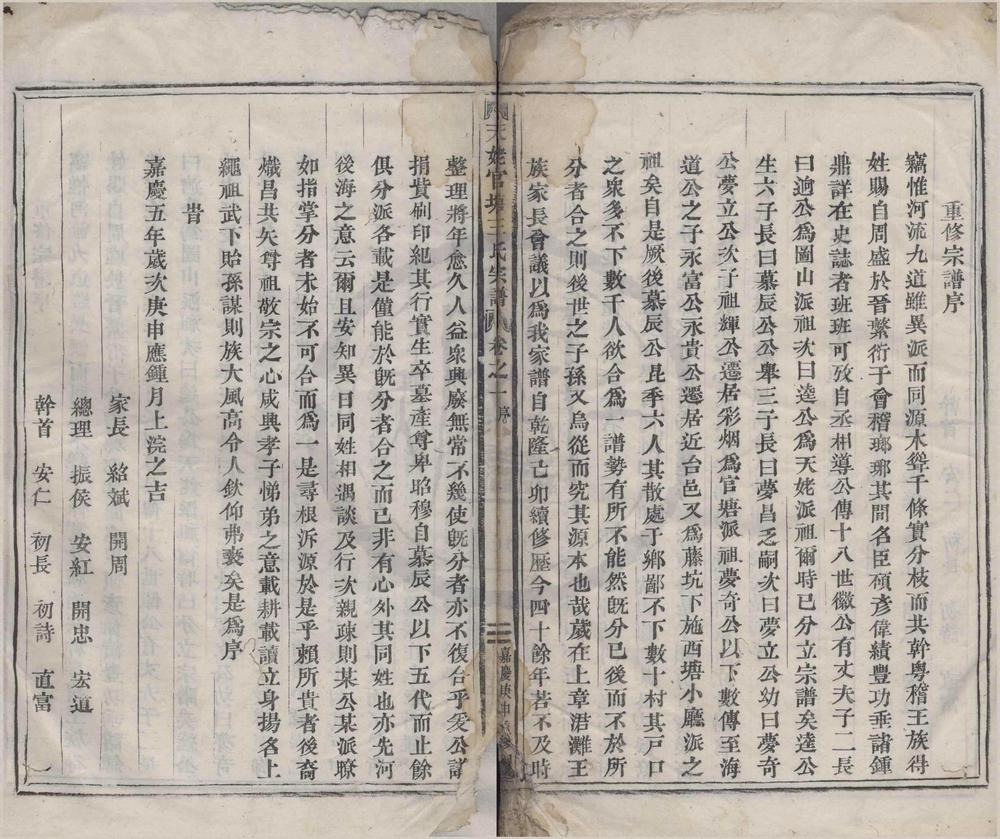 重修宗譜序
竊惟河流九道雖異派而同源木聳千條實分枝而共幹粵稽王族得
姓賜自周盛於晉蘩衍于會稽瑯琊其間名臣碩彥偉績豐功垂諸鍾
鼎詳在史誌者班班可攷自丞相導公傳十八世徽公有丈夫子二長
曰逈公爲圖山派祖次曰逵公爲天姥派祖爾時已分立宗譜矣逵公
生六子長曰慕辰公公舉三子長曰夢昌乏嗣次曰夢立公幼曰夢奇
公夢立公次子祖輝公遷居彩烟爲官塘派祖夢奇公以下數傳至海
道公之子永富公永貴公遷居近台邑又爲藤坑下施西塘小廳派之
祖矣自是厥後慕辰公昆季六人其散處于鄉鄙不下數十村其戸口
之衆多不下數千人欲合爲一譜勢有所不能然旣分已後而不於所
分者合之則後世之子孫又烏從而究其源本也哉歲在上章涒灘王
族家長會議以爲我家譜自乾隆己卯續修歷今四十餘年若不及時
天姥官塘王氏宗譜 卷之一 序 二 嘉慶庚申
整理將年愈久人益衆興廢無常不幾使旣分者亦不復合乎爰公諸
捐貲刷印紀其行實生卒墓產尊卑昭穆自慕辰公以下五代而止餘
俱分派各載是僅能於旣分者合之而已非有心外其同姓也亦先河
後海之意云爾且安知異日同姓相遇談及行次親疎則某公某派瞭
如指掌分者未始不可合而爲一是尋根泝源於是乎賴所貴者後裔
熾昌共矢尊祖敬宗之心咸興孝子悌弟之意載耕載讀立身揚名上
繩祖武下貽孫謀則族大風高令人欽仰弗衰矣是爲序
旹
嘉慶五年歲次庚申應鍾月上浣之吉
家長 紹斌 開周
總理 振侯 安紅 開忠 宏道
幹首 安仁 初長 初詩 直富